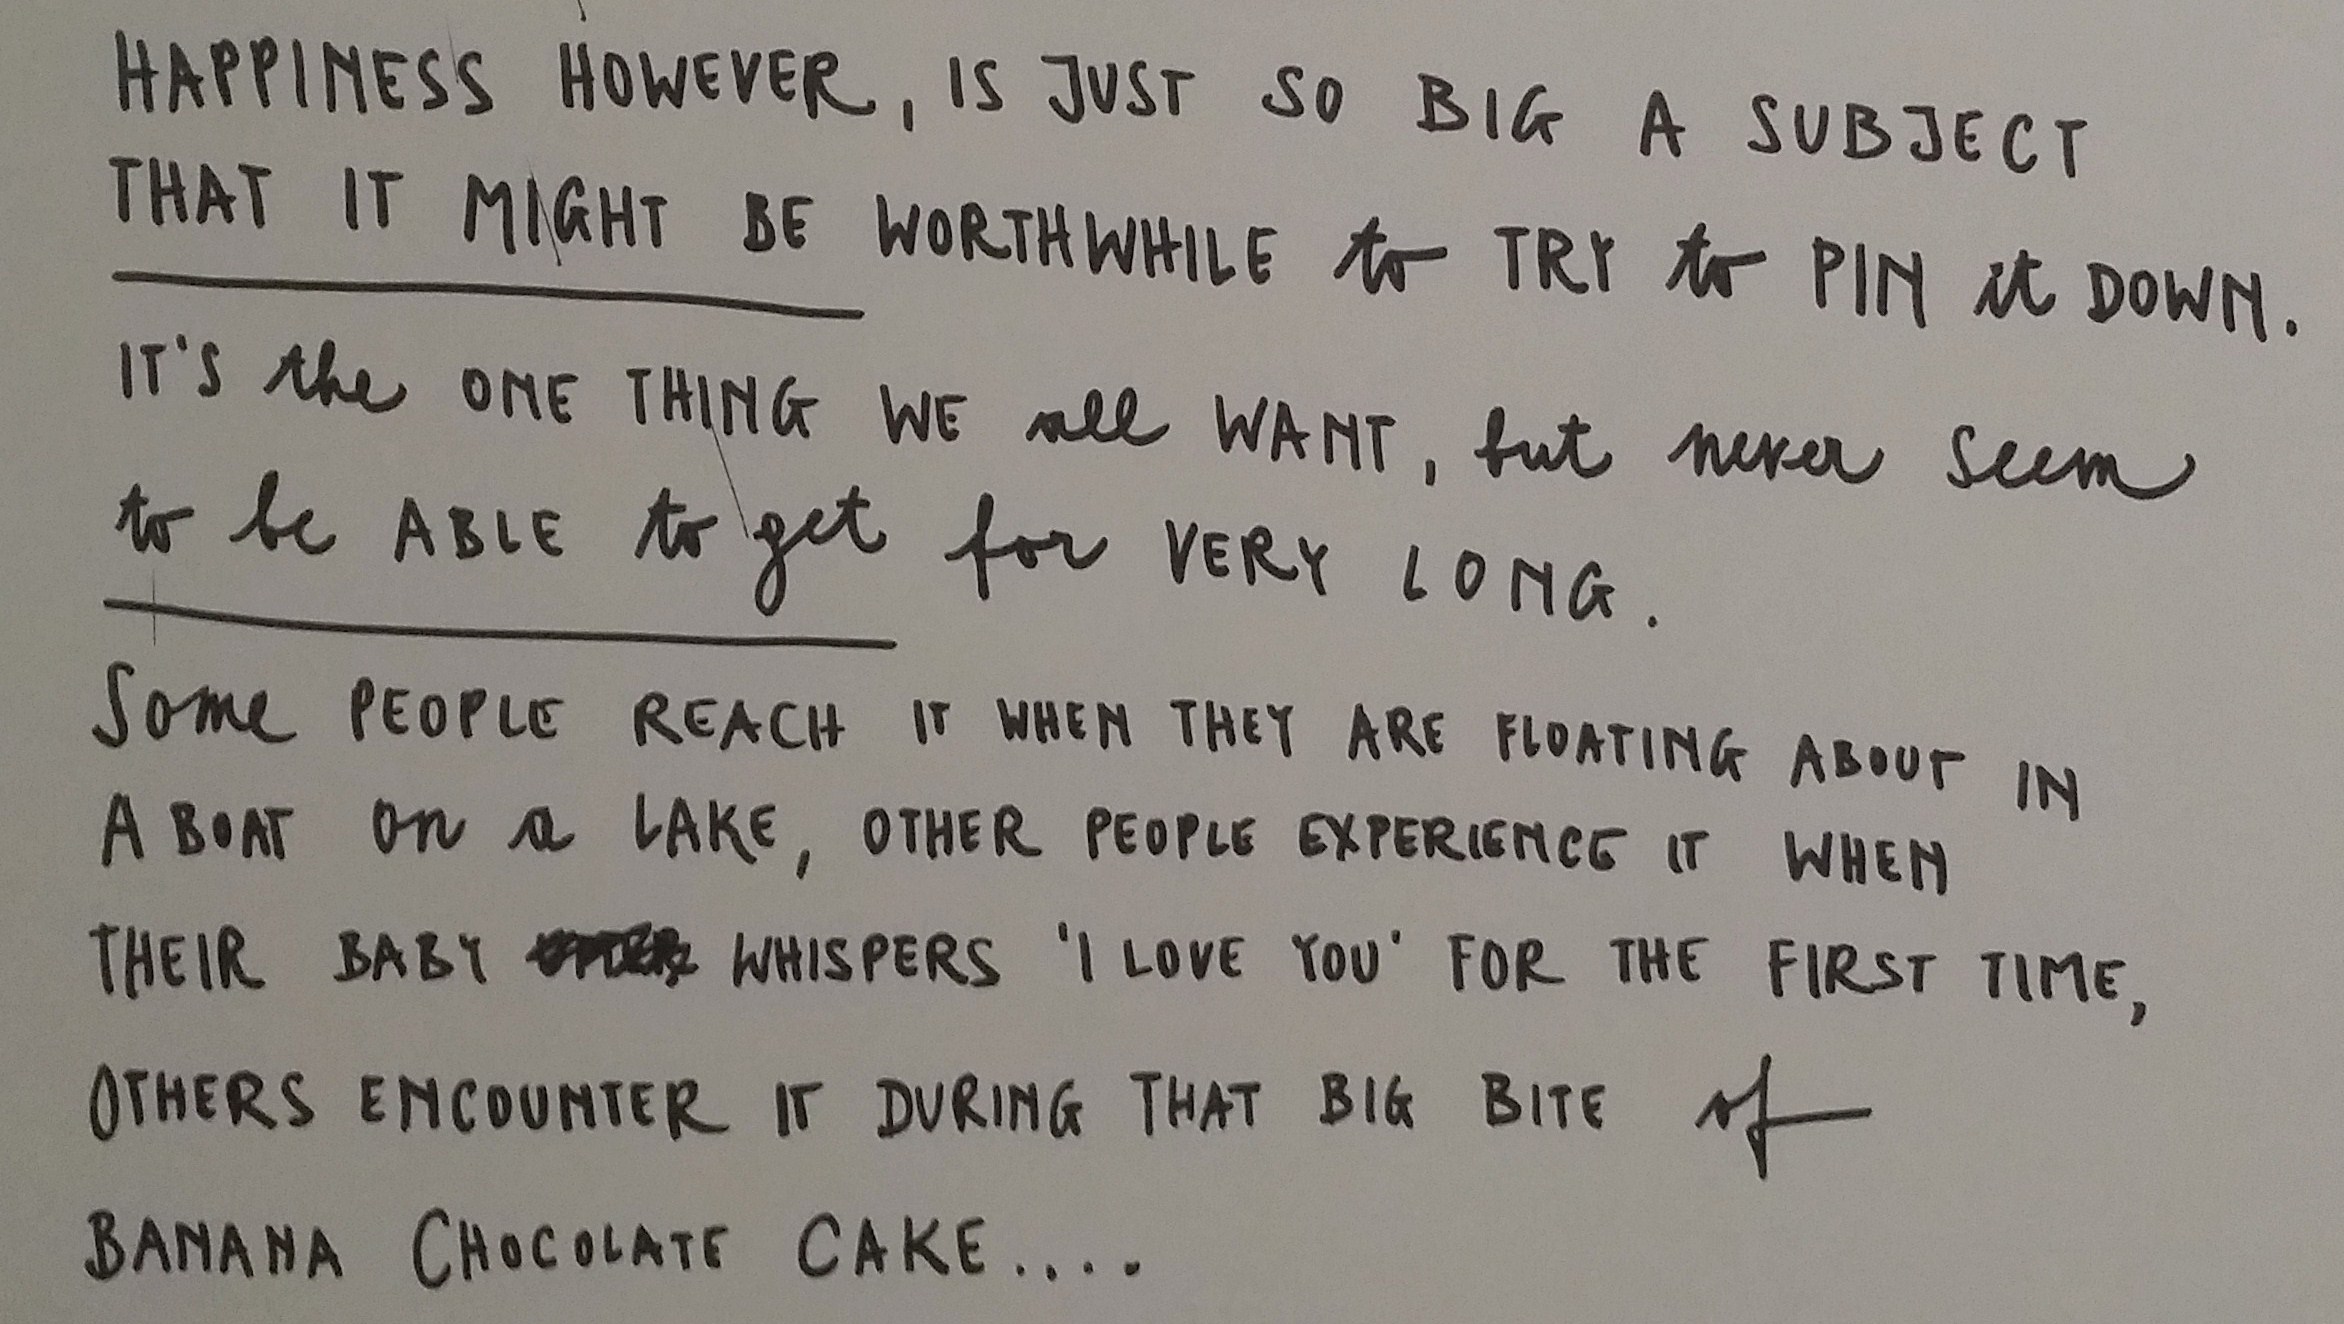 HAPPINESS HOWEVER, IS JUST SO BIG A SUBJECT
THAT IT MIGHT BE WORTHWHILE to TRY to PIN it DOWN.
IT'S the ONE THING WE all WANT, but never seem
to be ABLE to get for VERY LONG.
Some PEOPLE REACH IT WHEN THEY ARE FLOATING ABOUT IN
A BOAT on a LAKE, OTHER PEOPLE EXPERIENCE IT WHEN
THEIR BABY WHISPERS 'I LOVE YOU' FOR THE FIRST TIME,
OTHERS ENCOUNTER IT DURING THAT BIG BITE of
BANANA CHOCOLATE CAKE....